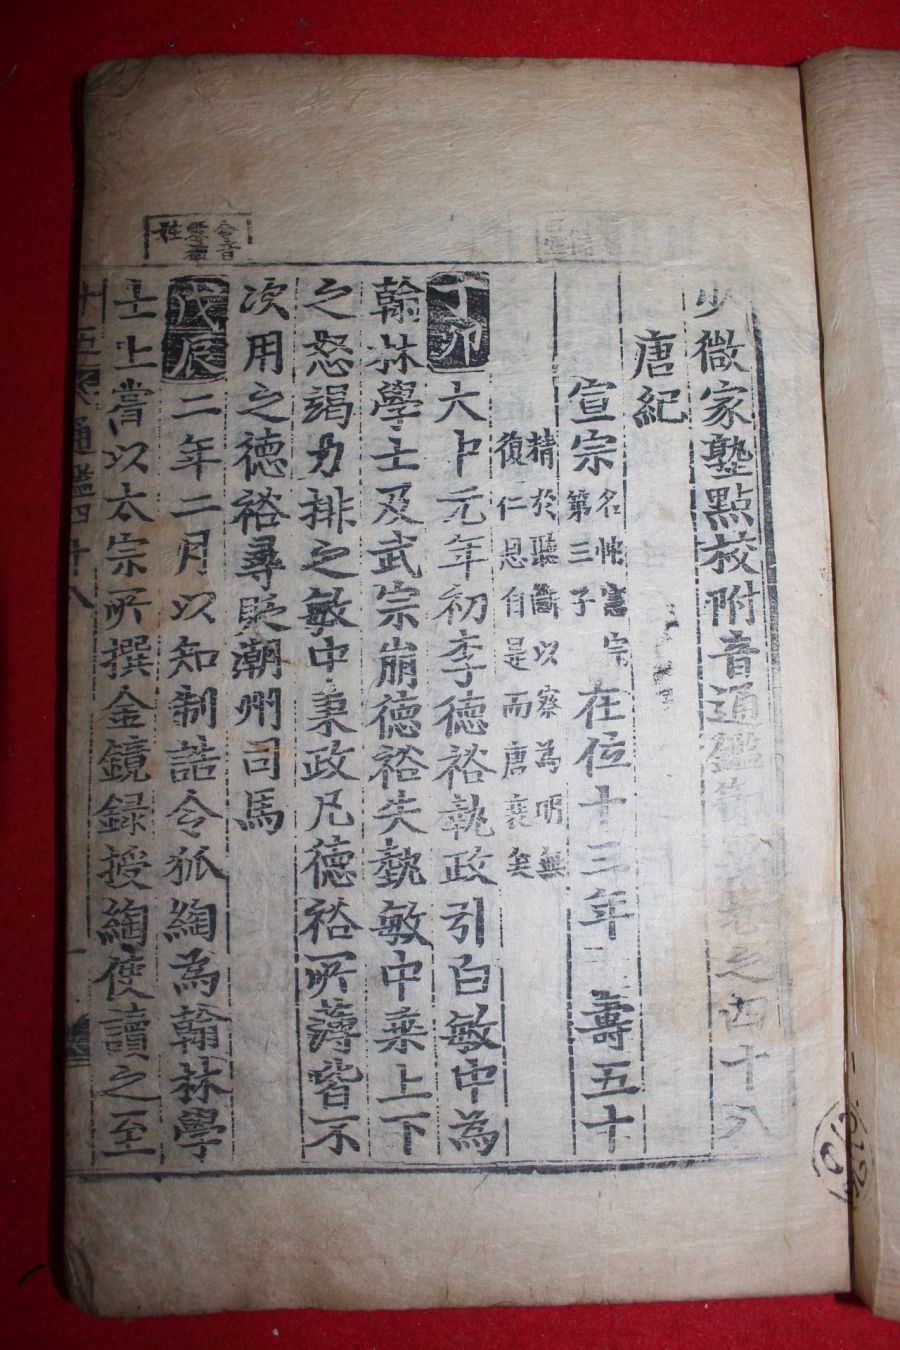 少微家塾點校附音通鑑節要卷之四十八
唐紀
宣宗
名忱憲宗
第三子
在位十三年 壽五十
精於聽斷以察為明無
復仁恩自是而唐衰矣
丁卯 大中元年初李德裕執政引白敏中為
翰林學士及武宗崩德裕失埶敏中乗上下
之怒竭力排之敏中秉政凡德裕所薄皆不
次用之德裕尋貶潮州司馬
戊辰 二年二月以知制誥令狐綯為翰林學
士上嘗以太宗所撰金鏡録授綯使讀之至
通鑑四十八
令音
姓